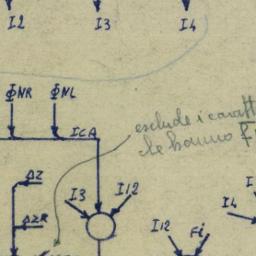 I2 I3 I4
ΦNR ΦNL
ICA
esclude i caratt
che hanno
ΔZ
I3 I12
ΔZR
I12 Fi
I4